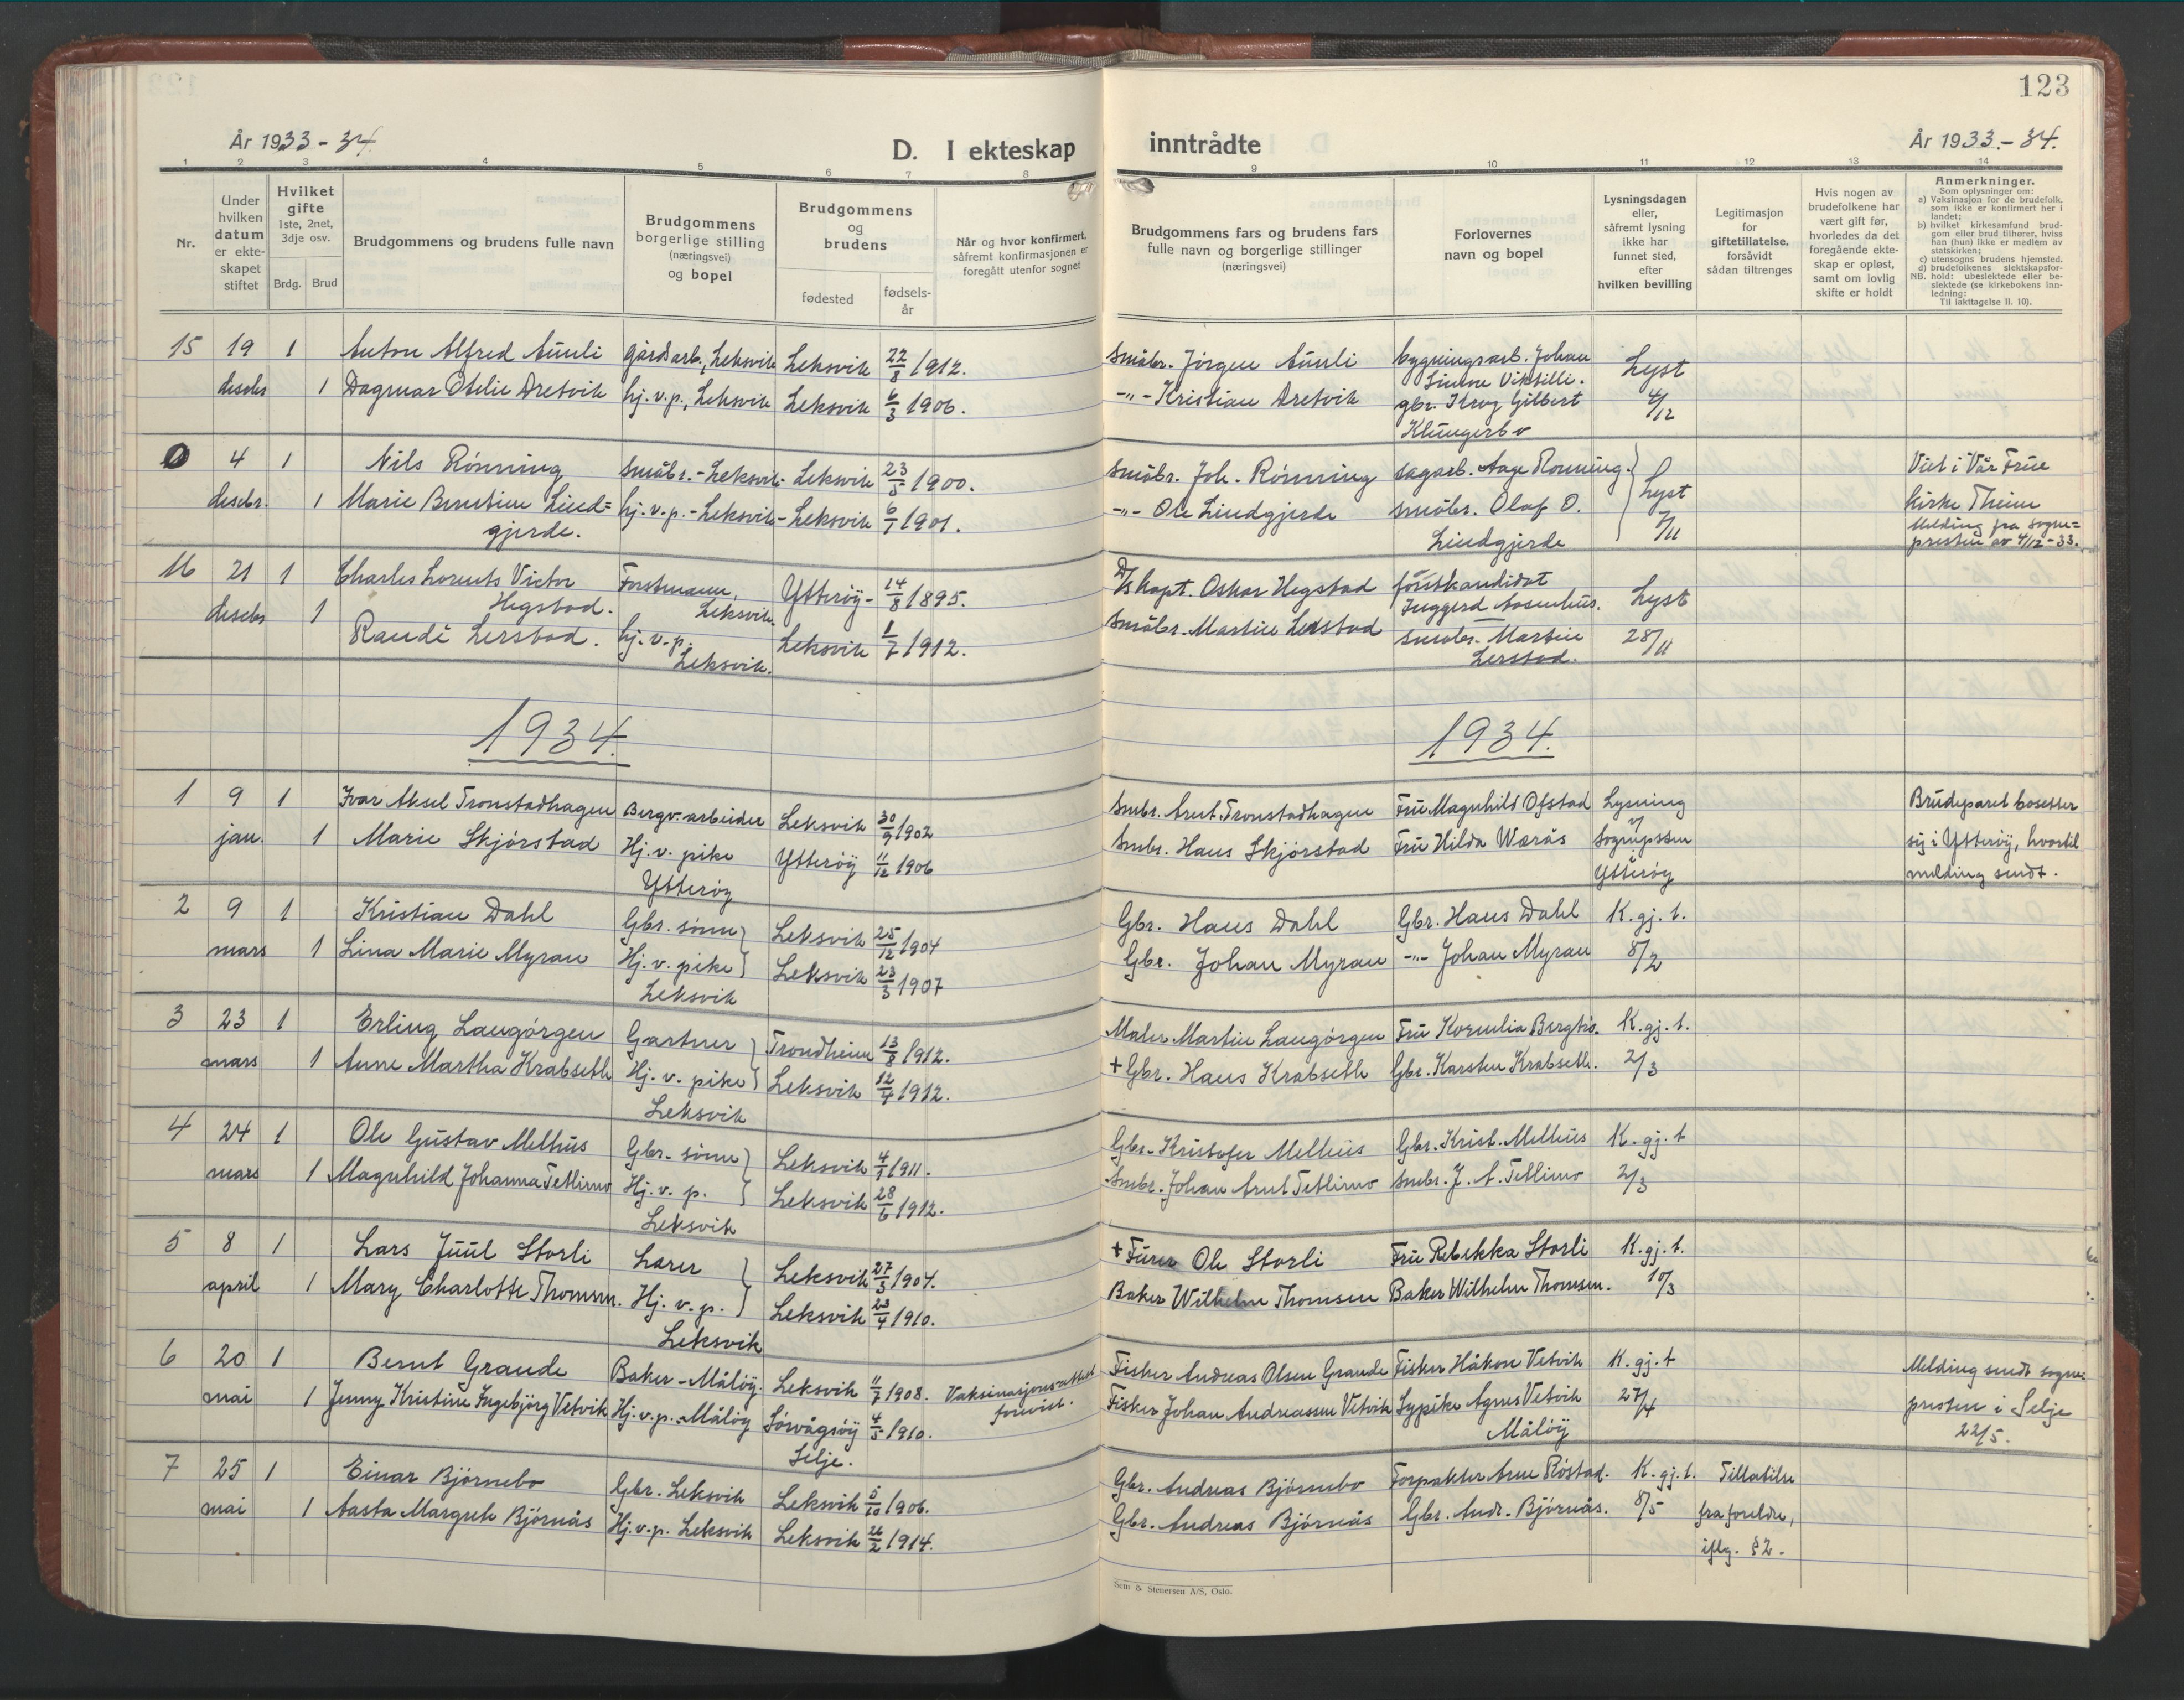 123
År 1933-34.
D. I ekteskap
inntrådte
År 1933.-34.
1 2 3 4 5 6 7 8 9 10 11 12 13 14
Nr.
Under
hvilken
datum
er ekte-
skapet
stiftet
Hvilket
gifte
1ste, 2net,
3dje osv.
Brdg. Brud
Brudgommens og brudens fulle navn
Brudgommens
borgerlige stilling
(næringsvei)
og bopel
Brudgommens
og
brudens
fødested
fødsels-
år
Når og hvor konfirmert,
såfremt konfirmasjonen er
foregått utenfor sognet
Brudgommens fars og brudens fars
fulle navn og borgerlige stillinger
(næringsvei)
Forlovernes
navn og bopel
Lysningsdagen
eller,
såfremt lysning
ikke har
funnet sted,
efter
hvilken bevilling
Legitimasjon
for
giftetillatelse,
forsåvidt
sådan tiltrenges
Hvis nogen av
brudefolkene har
vært gift før,
hvorledes da det
foregående ekte-
skap er opløst,
samt om lovlig
skifte er holdt
Anmerkninger.
Som oplysninger om:
a) Vaksinasjon for de brudefolk,
som ikke er konfirmert her i
landet;
b) hvilket kirkesamfund brud-
gom eller brud tilhører, hviss
han (hun) ikke er medlem av
statskirken;
c) utensogns brudens hjemsted.
d) brudefolkenes slektskapsfor-
NB. hold: ubeslektede eller be-
slektede (se kirkebokens inn-
ledning:
Til iakttagelse II. 10).
15 19 1 Anton Alfred Aunli gårdsarb., Leksvik Leksvik 22/8 1912. Småbr. Jørgen Aunli bygningsarb. Johan
Simon Viksilli. Lyst
desbr 1 Dagmar Otelie Dretvik hj.v.p., Leksvik Leksvik 6/3 1906. -"- Kristian Dretvik gbr. Krog Gilbert 4/12
Klungerbo
0 4 1 Nils Rønning småbr. - Leksvik - Leksvik 23/5 1900. Småbr. Joh. Rønning sagarb. Aage Rønning. Lyst Viet i Vår Frue
desbr. 1 Marie Berntine Lind= hj.v.p. - Leksvik - Leksvik 6/7 1901. -"- Ole Lindgjerde småbr. Olaf O. 7/11 Kirke Trheim
gjerde. Lindgjerde Melding fra sogne=
presten av 4/12-33.
16 21 1 Charles Lorents Victor Forstmann, Ytterøy - 14/8 1895. D/s kapt. Oskar Hegstad forstkandidat
Hegstad. Leksvik. Inggerd Aasenhus. Lyst
desbr 1 Randi Lerstad. hj.v.p. Leksvik 1/7 1912. Småbr. Martin Lerstad småbr. Martin 28/11
Leksvik. Lerstad.
1934. 1934.
1 9 1 Ivar Aksel Tronstadhagen Bergv.arbeider Leksvik 30/9 1902 Smbr. Arnt Tronstadhagen Fru Magnhild Ofstad Lysning Brudeparet bosetter
jan. 1 Marie Skjørstad Hj.v. pike Ytterøy 11/12 1906 Smbr. Hans Skjørstad Fru Hilda Wærås v/ Sogneprsten sig i Ytterøy, hvortil
Ytterøy Ytterøy melding sendt.
2 9 1 Kristian Dahl Gbr. sønn Leksvik 25/12 1904 Gbr. Hans Dahl Gbr. Hans Dahl K.gj.t.
mars 1 Lina Marie Myran Hj.v. pike Leksvik 23/3 1907 Gbr. Johan Myran -"- Johan Myran 8/2
Leksvik
3 23 1 Erling Laugørgen Gartner Trondheim 13/8 1912. Maler Martin Laugørgen Fru Kornelia Bergtrø. K.gj.t.
mars 1 Anne Martha Krabseth Hj.v. pike Leksvik 12/4 1912. + Gbr. Hans Krabseth Gbr. Karsten Krabseth. 2/3
Leksvik
4 24 1 Ole Gustav Melhus Gbr. sønn Leksvik 4/9 1911. Gbr. Kristofer Melhus Gbr. Krist. Melhus K.gj.t
mars 1 Magnhild Johanna Tetlimo Hj.v.p. Leksvik 28/6 1912. Smbr. Johan Arnt Tetlimo Smbr. J. A. Tetlimo 2/3
Leksvik
5 8 1 Lars Juul Storli Lærer Leksvik 27/3 1904. + Furer Ole Storli Fru Rebekka Storli K.gj.t.
april 1 Mary Charlotte Thomsen. Hj.v.p. Leksvik 23/4 1910. Baker Wilhelm Thomsen Baker Wilhelm Thomsen. 10/3
Leksvik
6 20 1 Bernt Grande Baker - Måløy. Leksvik 11/7 1908. Vaksinasjonsattest Fisker Andreas Olsen Grande Fisker Håkon Vetvik K.gj.t Melding sendt sogne-
forevist.
mai 1 Jenny Kristine Ingebjørg Vetvik Hj.v.p. Måløy Sørvågsøy 4/5 1910. Fisker Johan Andreassen Vetvik Sypike Agnes Vetvik 27/4 presten i Selje
Selje. Måløy 22/5.
7 25 1 Einar Bjørnebo Gbr. Leksvik Leksvik 5/10 1906. Gbr. Andreas Bjørnebo Forpakter Arne Røstad. K.gj.t. Tillatelse
mai 1 Aasta Margrete Bjørnås Hj.v.p. Leksvik Leksvik 26/2 1914. Gbr. Andreas Bjørnås Gbr. Andr. Bjørnås. 8/5 fra foreldre,
iflg. §2.
Sem & Stenersen A/S, Oslo.